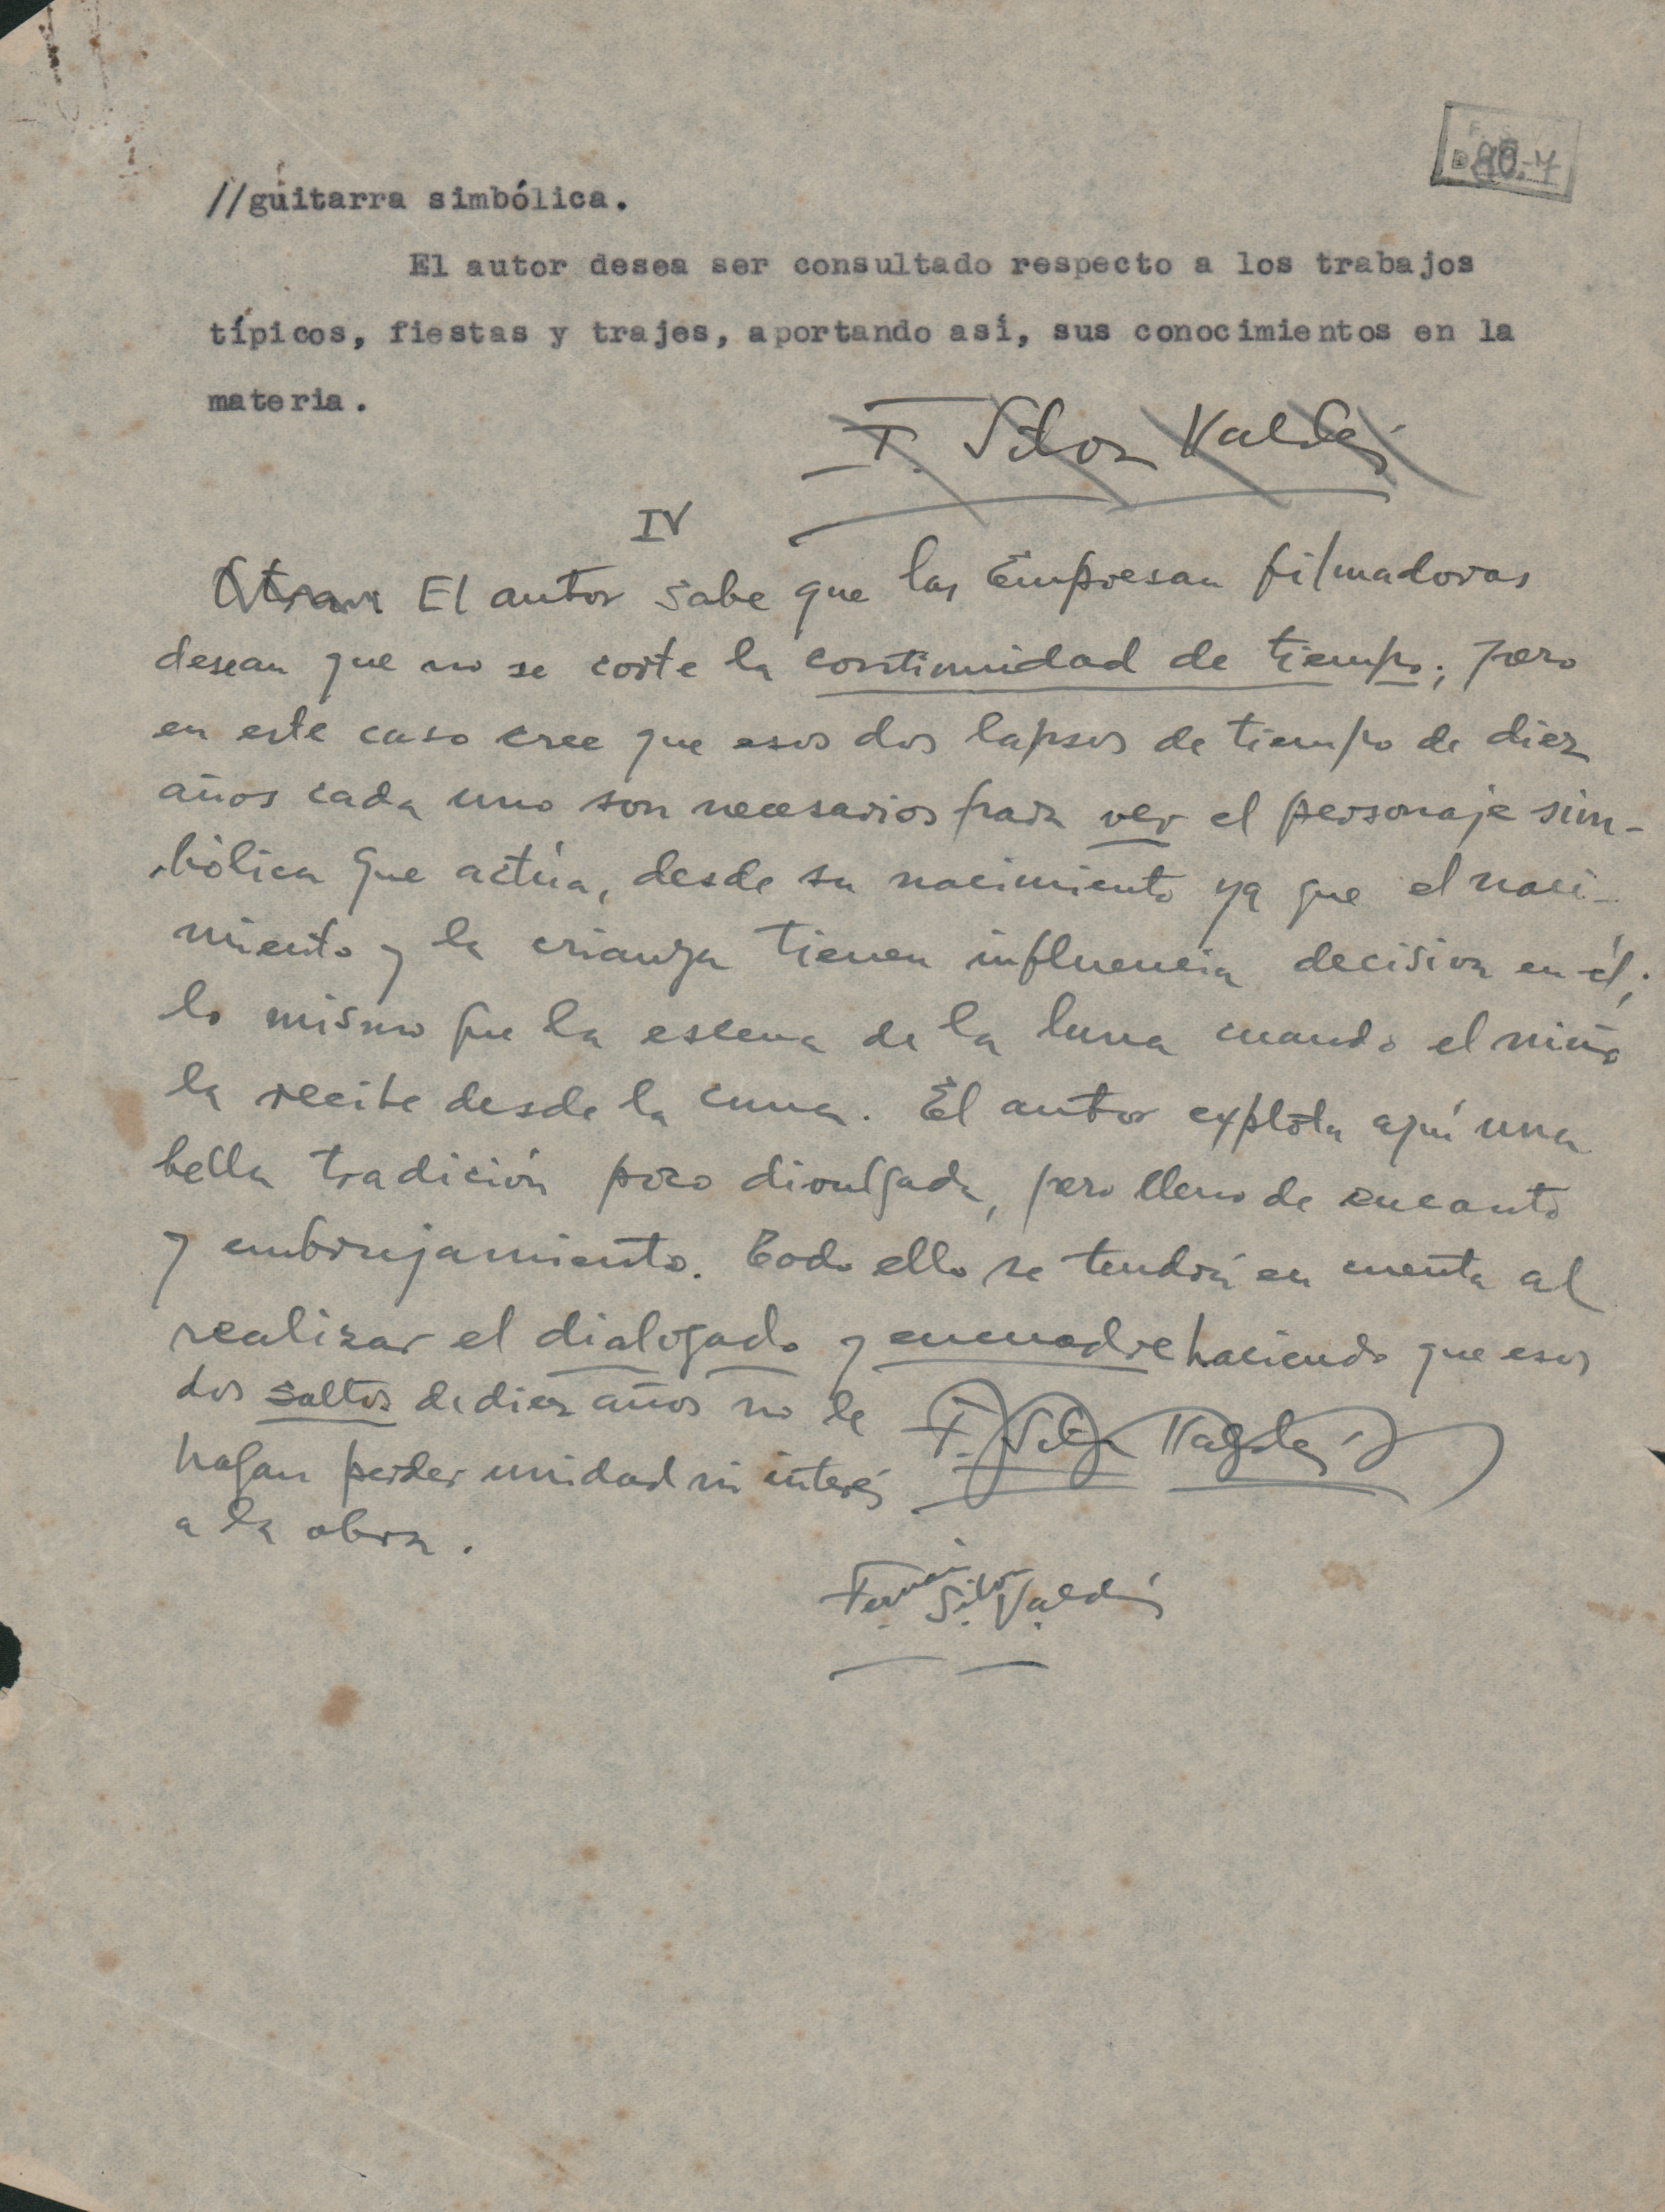 80.4
//guitarra simbólica.
El autor desea ser consultado respecto a los trabajos
típicos, fiestas y trajes, aportando así, sus conocimientos en la
materia.
F. Silva Valdés
IV
El autor sabe que las Empresas filmadoras
desean que no se corte la continuidad de tiempo; pero
en este caso cree que esos dos lapsos de tiempo de diez
años cada uno son necesarios para ver el personaje sim-
bólico que actúa, desde su nacimiento ya que el naci-
miento y la crianza tienen influencia decisiva en él;
lo mismo que la escena de la luna cuando el niño
la recibe desde la cuna. El autor explota aquí una
bella tradición poco divulgada, pero lleno de encanto
y embrujamiento. Todo ello se tendrá en cuenta al
realizar el dialogado y encuadre haciendo que esos
dos saltos de diez años no le
F. Silva Valdés
hagan perder unidad ni interés
a la obra.
Fernán Silva Valdés